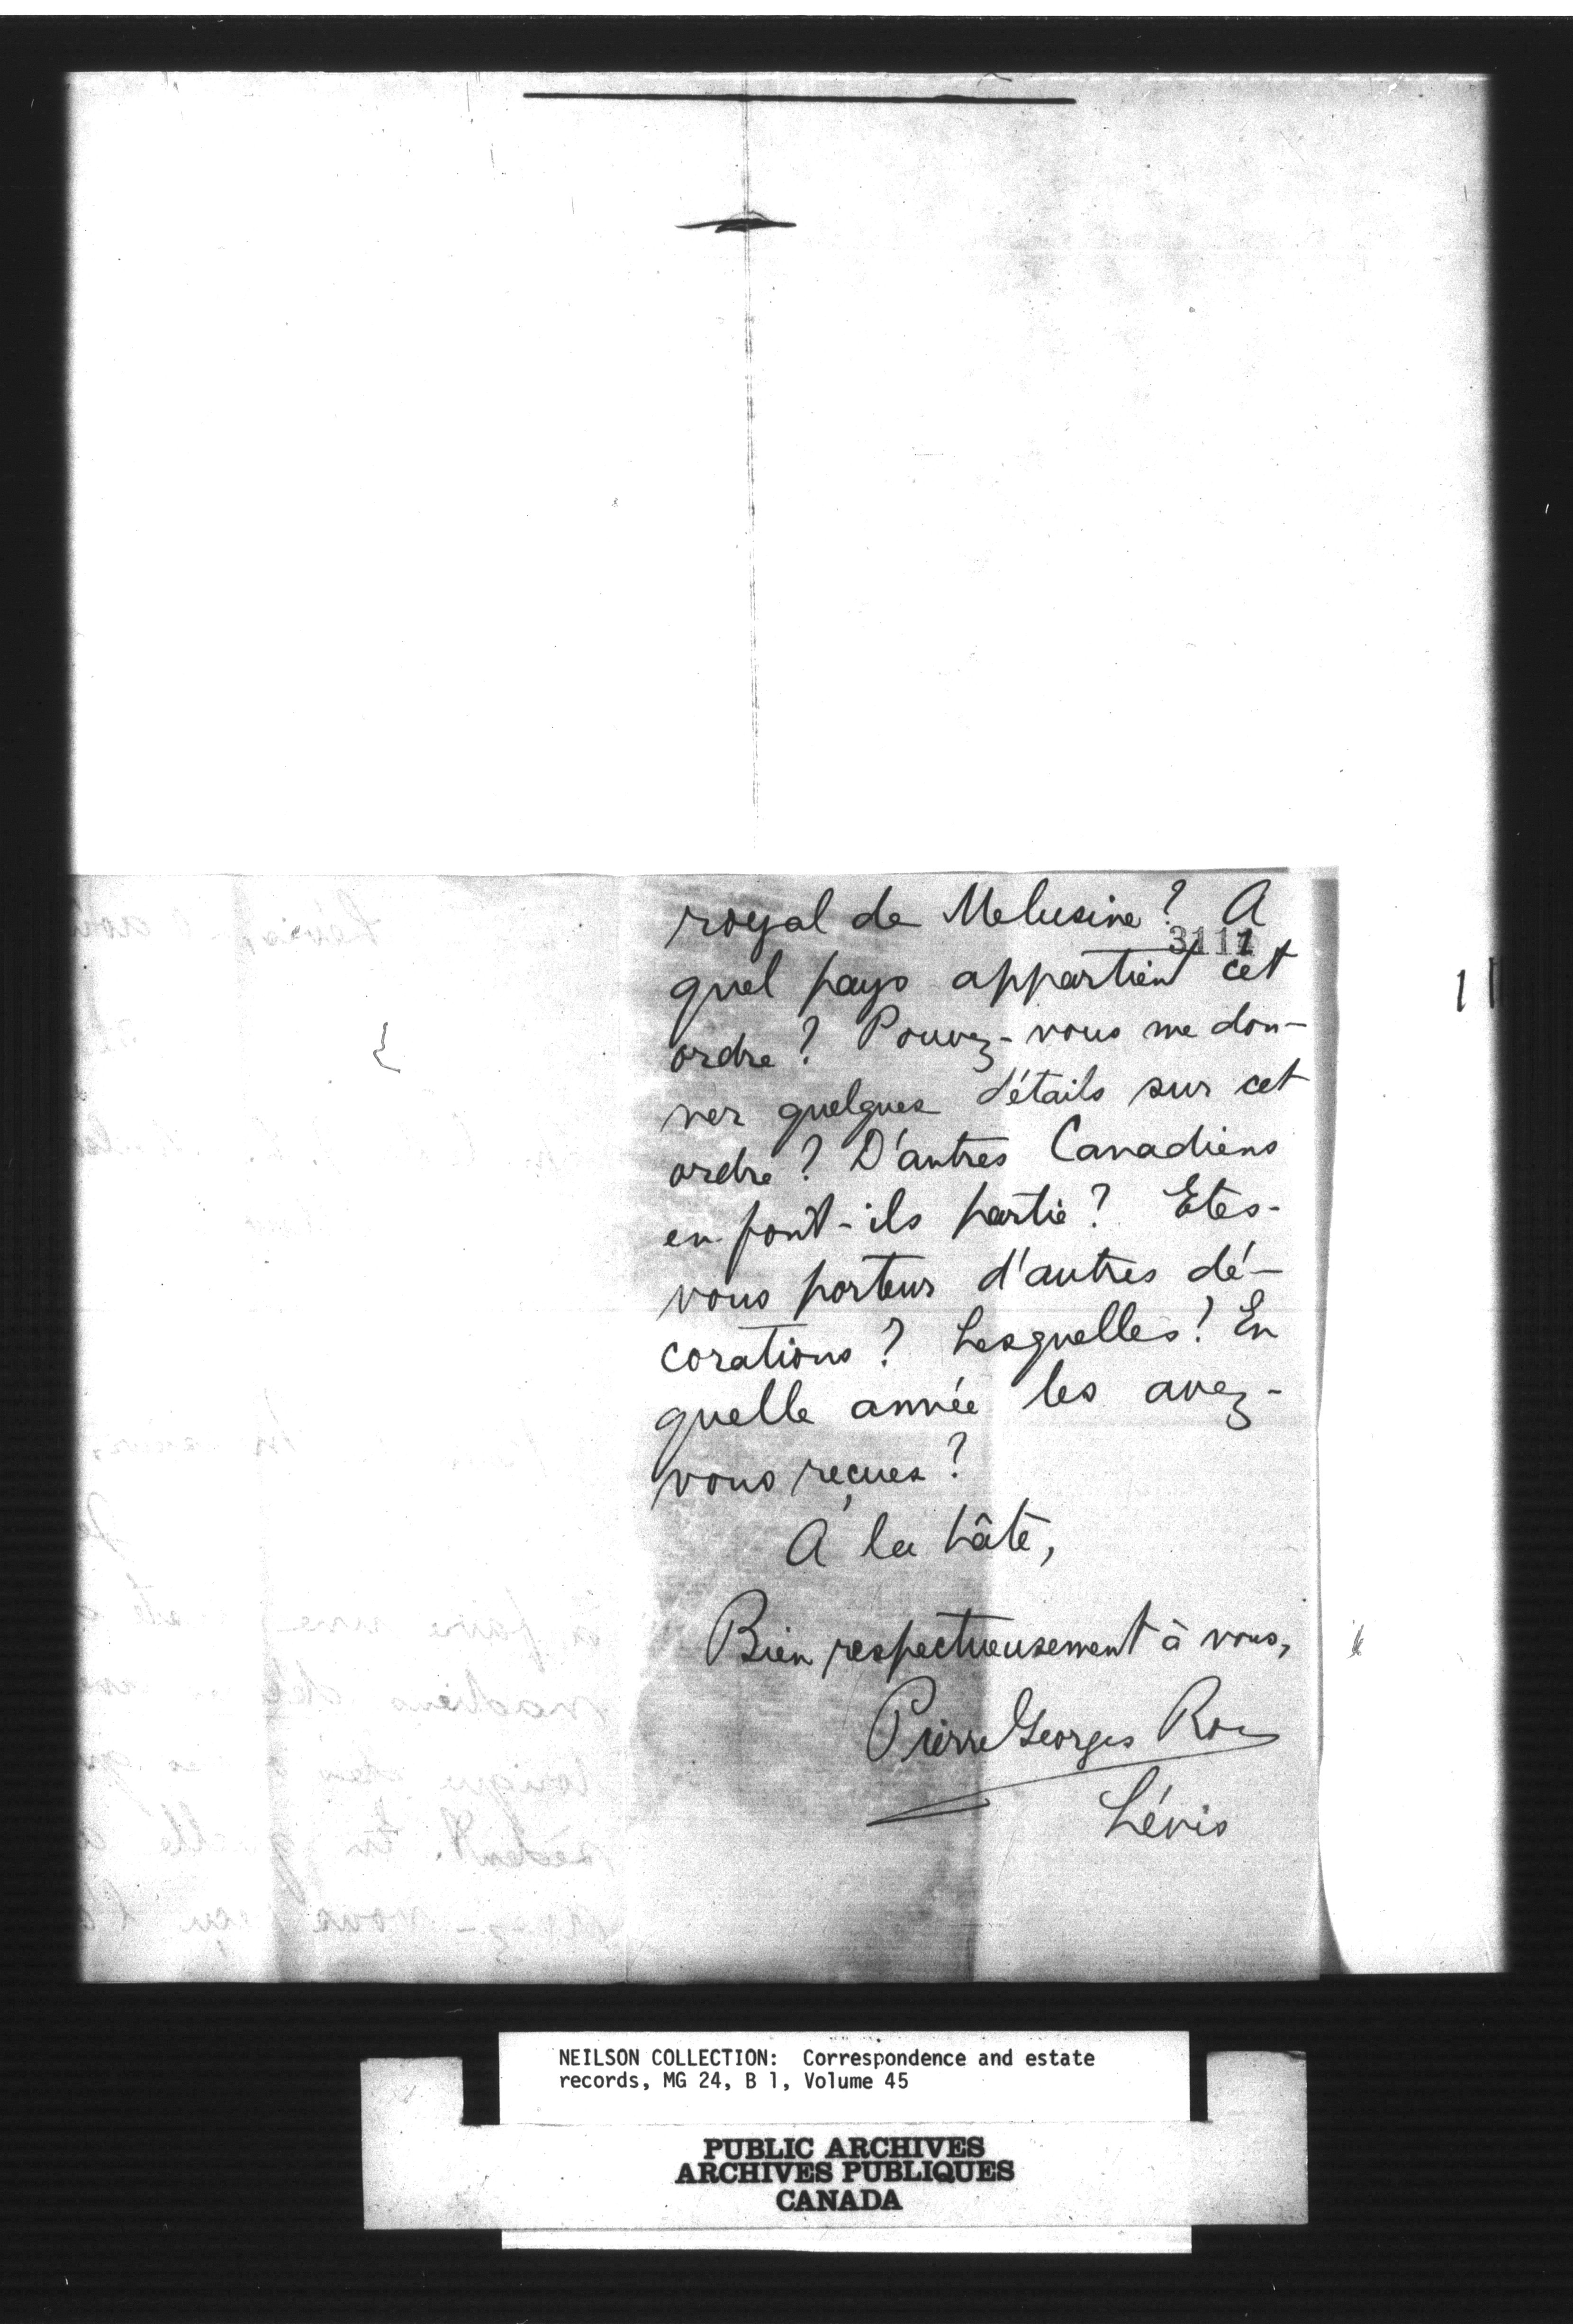 royal de Melusine ? A
3111
quel pays appartient cet
ordre ? Pouvez-vous me don-
ner quelques détails sur cet
ordre ? D'autres Canadiens
en font-ils partie ? Etes-
vous porteur d'autres dé-
corations ? Lesquelles ? En
quelle année les avez-
vous reçues ?
A la hâte,
Bien respectueusement à vous,
Pierre Georges Roy
Lévis
NEILSON COLLECTION: Correspondence and estate
records, MG 24, B 1, Volume 45
PUBLIC ARCHIVES
ARCHIVES PUBLIQUES
CANADA